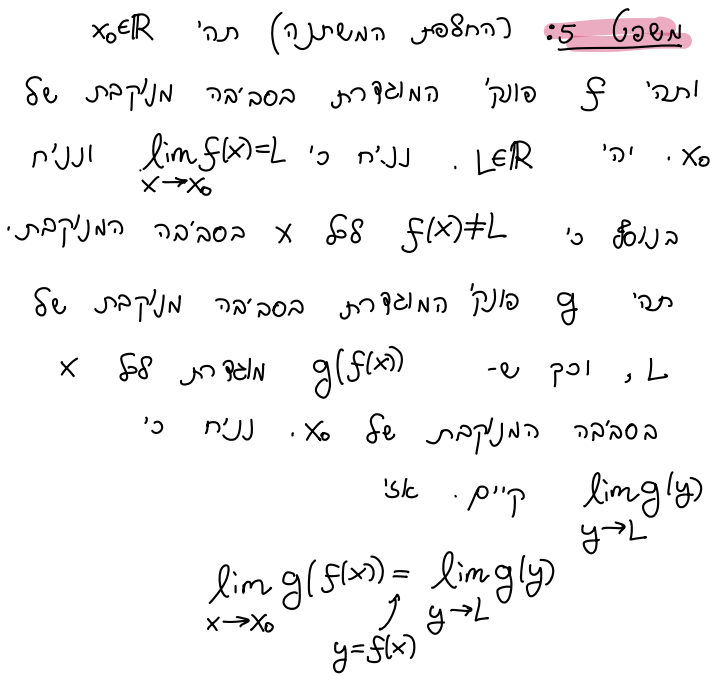 משפט 5: (החלפת המשתנה) תהי x₀∈ℝ
ותהי f פונק' המוגדרת בסביבה מנוקבת של
x₀. יהי L∈ℝ. נניח כי lim f(x)=L ונניח
x→x₀
בנוסף כי f(x)≠L לכל x בסביבה המנוקבת.
תהי g פונק' המוגדרת בסביבה מנוקבת של
L, וכך ש- g(f(x)) מוגדרת לכל x
בסביבה המנוקבת של x₀. נניח כי
lim g(y) קיים. אזי
y→L
lim g(f(x)) = lim g(y)
x→x₀ y→L
y=f(x)